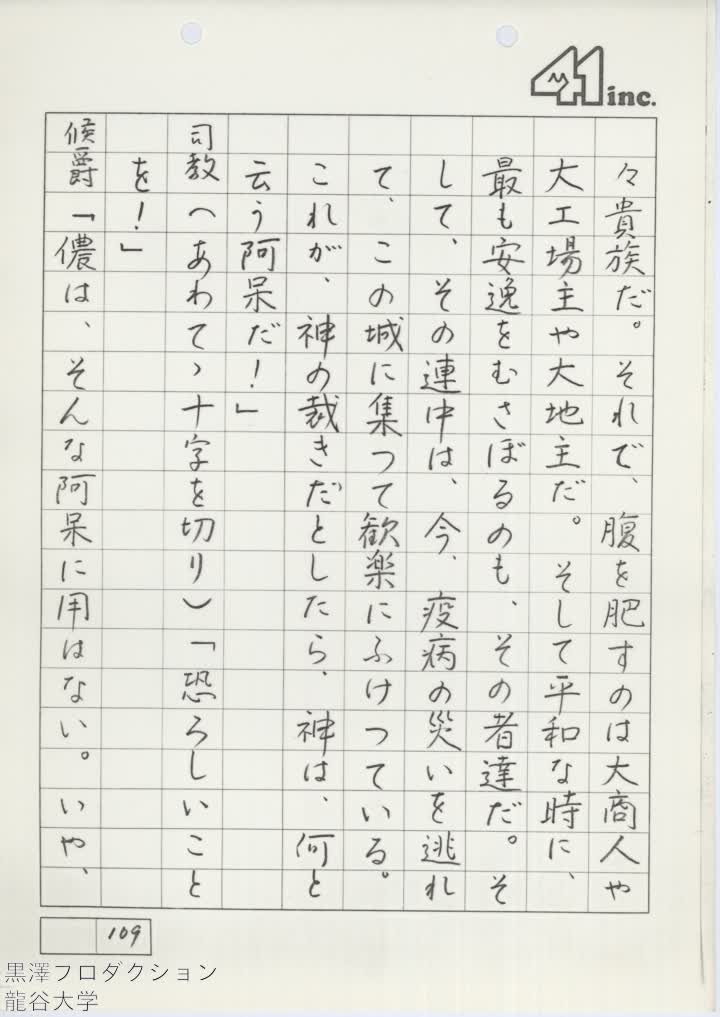 41 inc.
々貴族だ。それで、腹を肥すのは大商人や
大工場主や大地主だ。そして平和な時に、
最も安逸をむさぼるのも、その者達だ。そ
して、その連中は、今、疫病の災いを逃れ
て、この城に集つて歓楽にふけつている。
これが、神の裁きだとしたら、神は、何と
云う阿呆だ！」
司教（あわてゝ十字を切り）「恐ろしいこと
を！」
候爵「儂は、そんな阿呆に用はない。いや、
109
黒澤プロダクション
龍谷大学